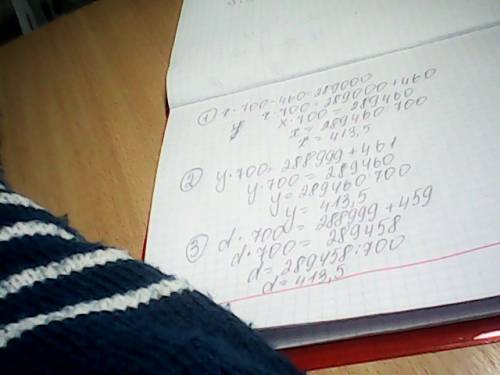 ① x·700-460=289000
x·700=289000+460
x·700=289460
x=289460:700
x=413,5
② y·700=288999+461
y·700=289460
y=289460:700
y=413,5
③ d·700=288999+459
d·700=289458
d=289458:700
d=413,5